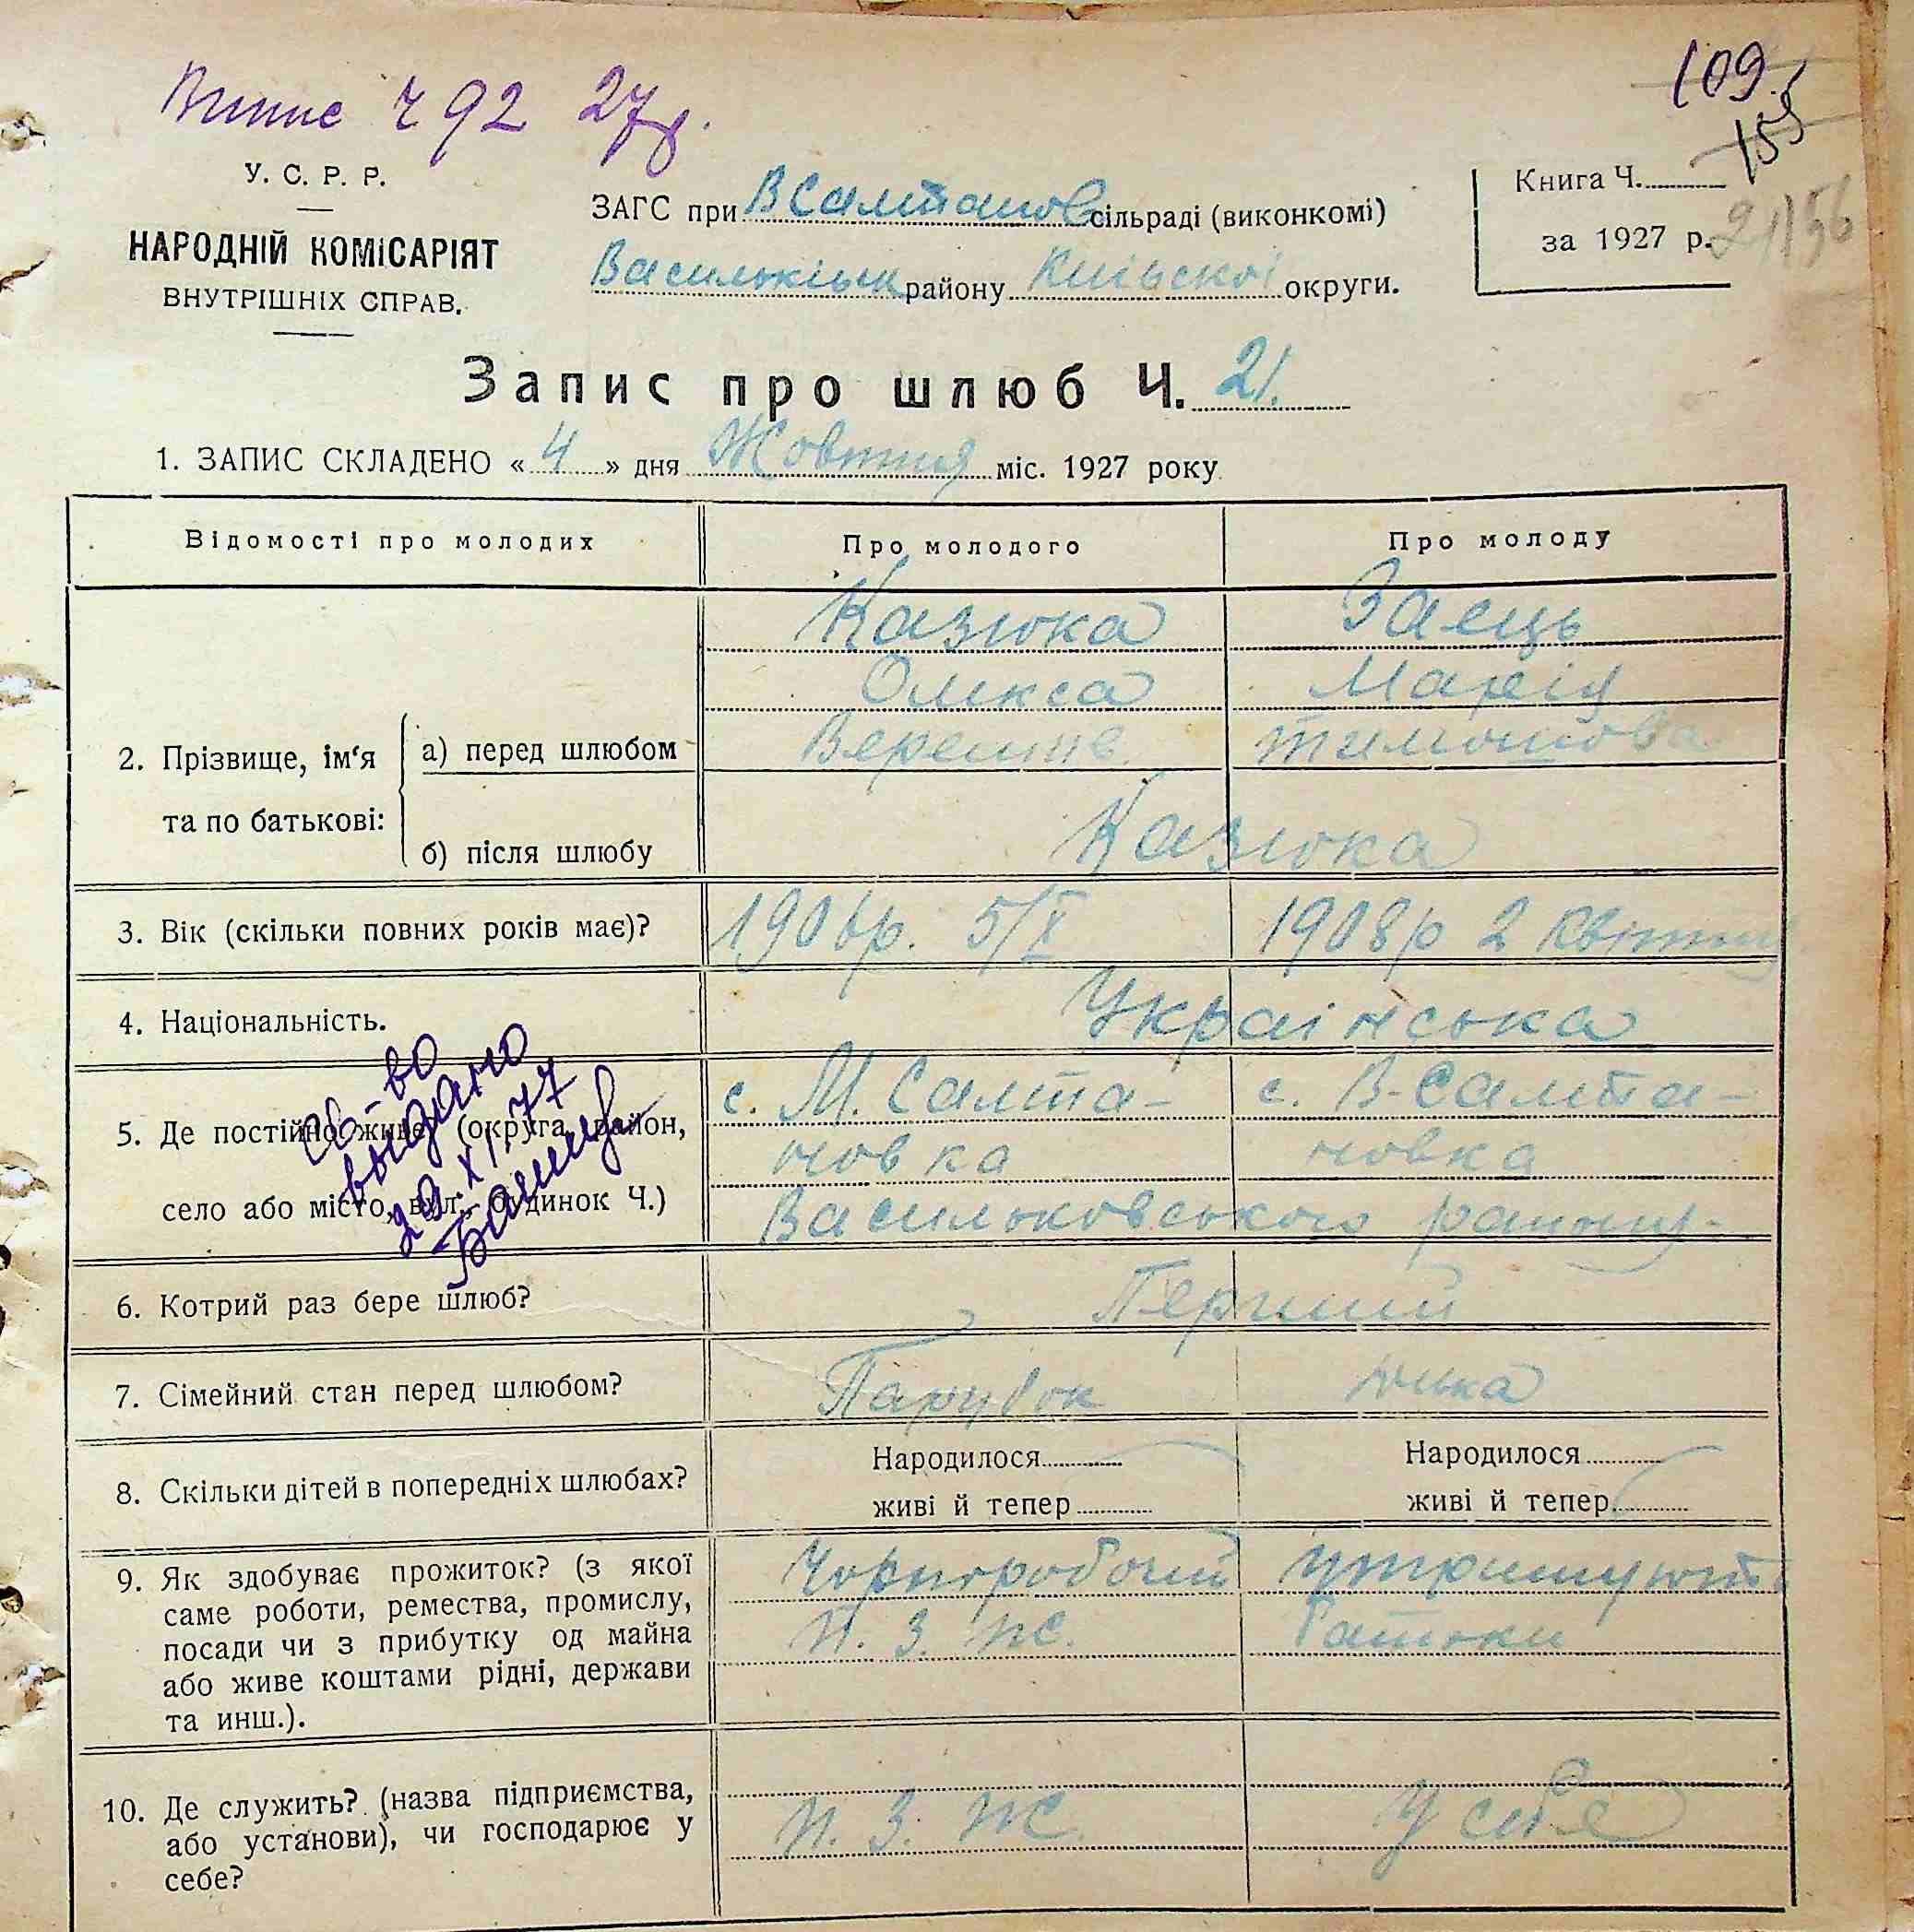 Випис Ч 92 27р.
109.
155
21/156
У. С. Р. Р.
НАРОДНІЙ КОМІСАРІЯТ
ВНУТРІШНІХ СПРАВ.
ЗАГС при ВСалтанов сільраді (виконкомі)
Васильківськ району Київскої округи.
Книга Ч.
за 1927 р.
Запис про шлюб Ч. 21.
1. ЗАПИС СКЛАДЕНО « 4 » дня Жовтня міс. 1927 року
Відомості про молодих Про молодого Про молоду
2. Прізвище, ім‘я та по батькові:
а) перед шлюбом
Казюка Заєць
Олекса Марія
Тимошова
б) після шлюбу Казюка
3. Вік (скільки повних років має)? 1906р. 5/X 1908р 2 Квітня
4. Національність. Українська
5. Де постійно живе (округа, район,
село або місто, вул., будинок Ч.)
с. М. Салта- с. В-Салта-
новка новка
Васильковського району.
св-во
выдано
29.XI.77
6. Котрий раз бере шлюб? Перший
7. Сімейний стан перед шлюбом? Парубок
8. Скільки дітей в попередніх шлюбах?
Народилося Народилося
живі й тепер живі й тепер
9. Як здобуває прожиток? (з якої
саме роботи, ремества, промислу,
посади чи з прибутку од майна
або живе коштами рідні, держави
та инш.).
Чорноробочий утримують
П. З. Ж. батьки
10. Де служить? (назва підприємства,
або установи), чи господарює у
себе?
П. З. Ж. У себе